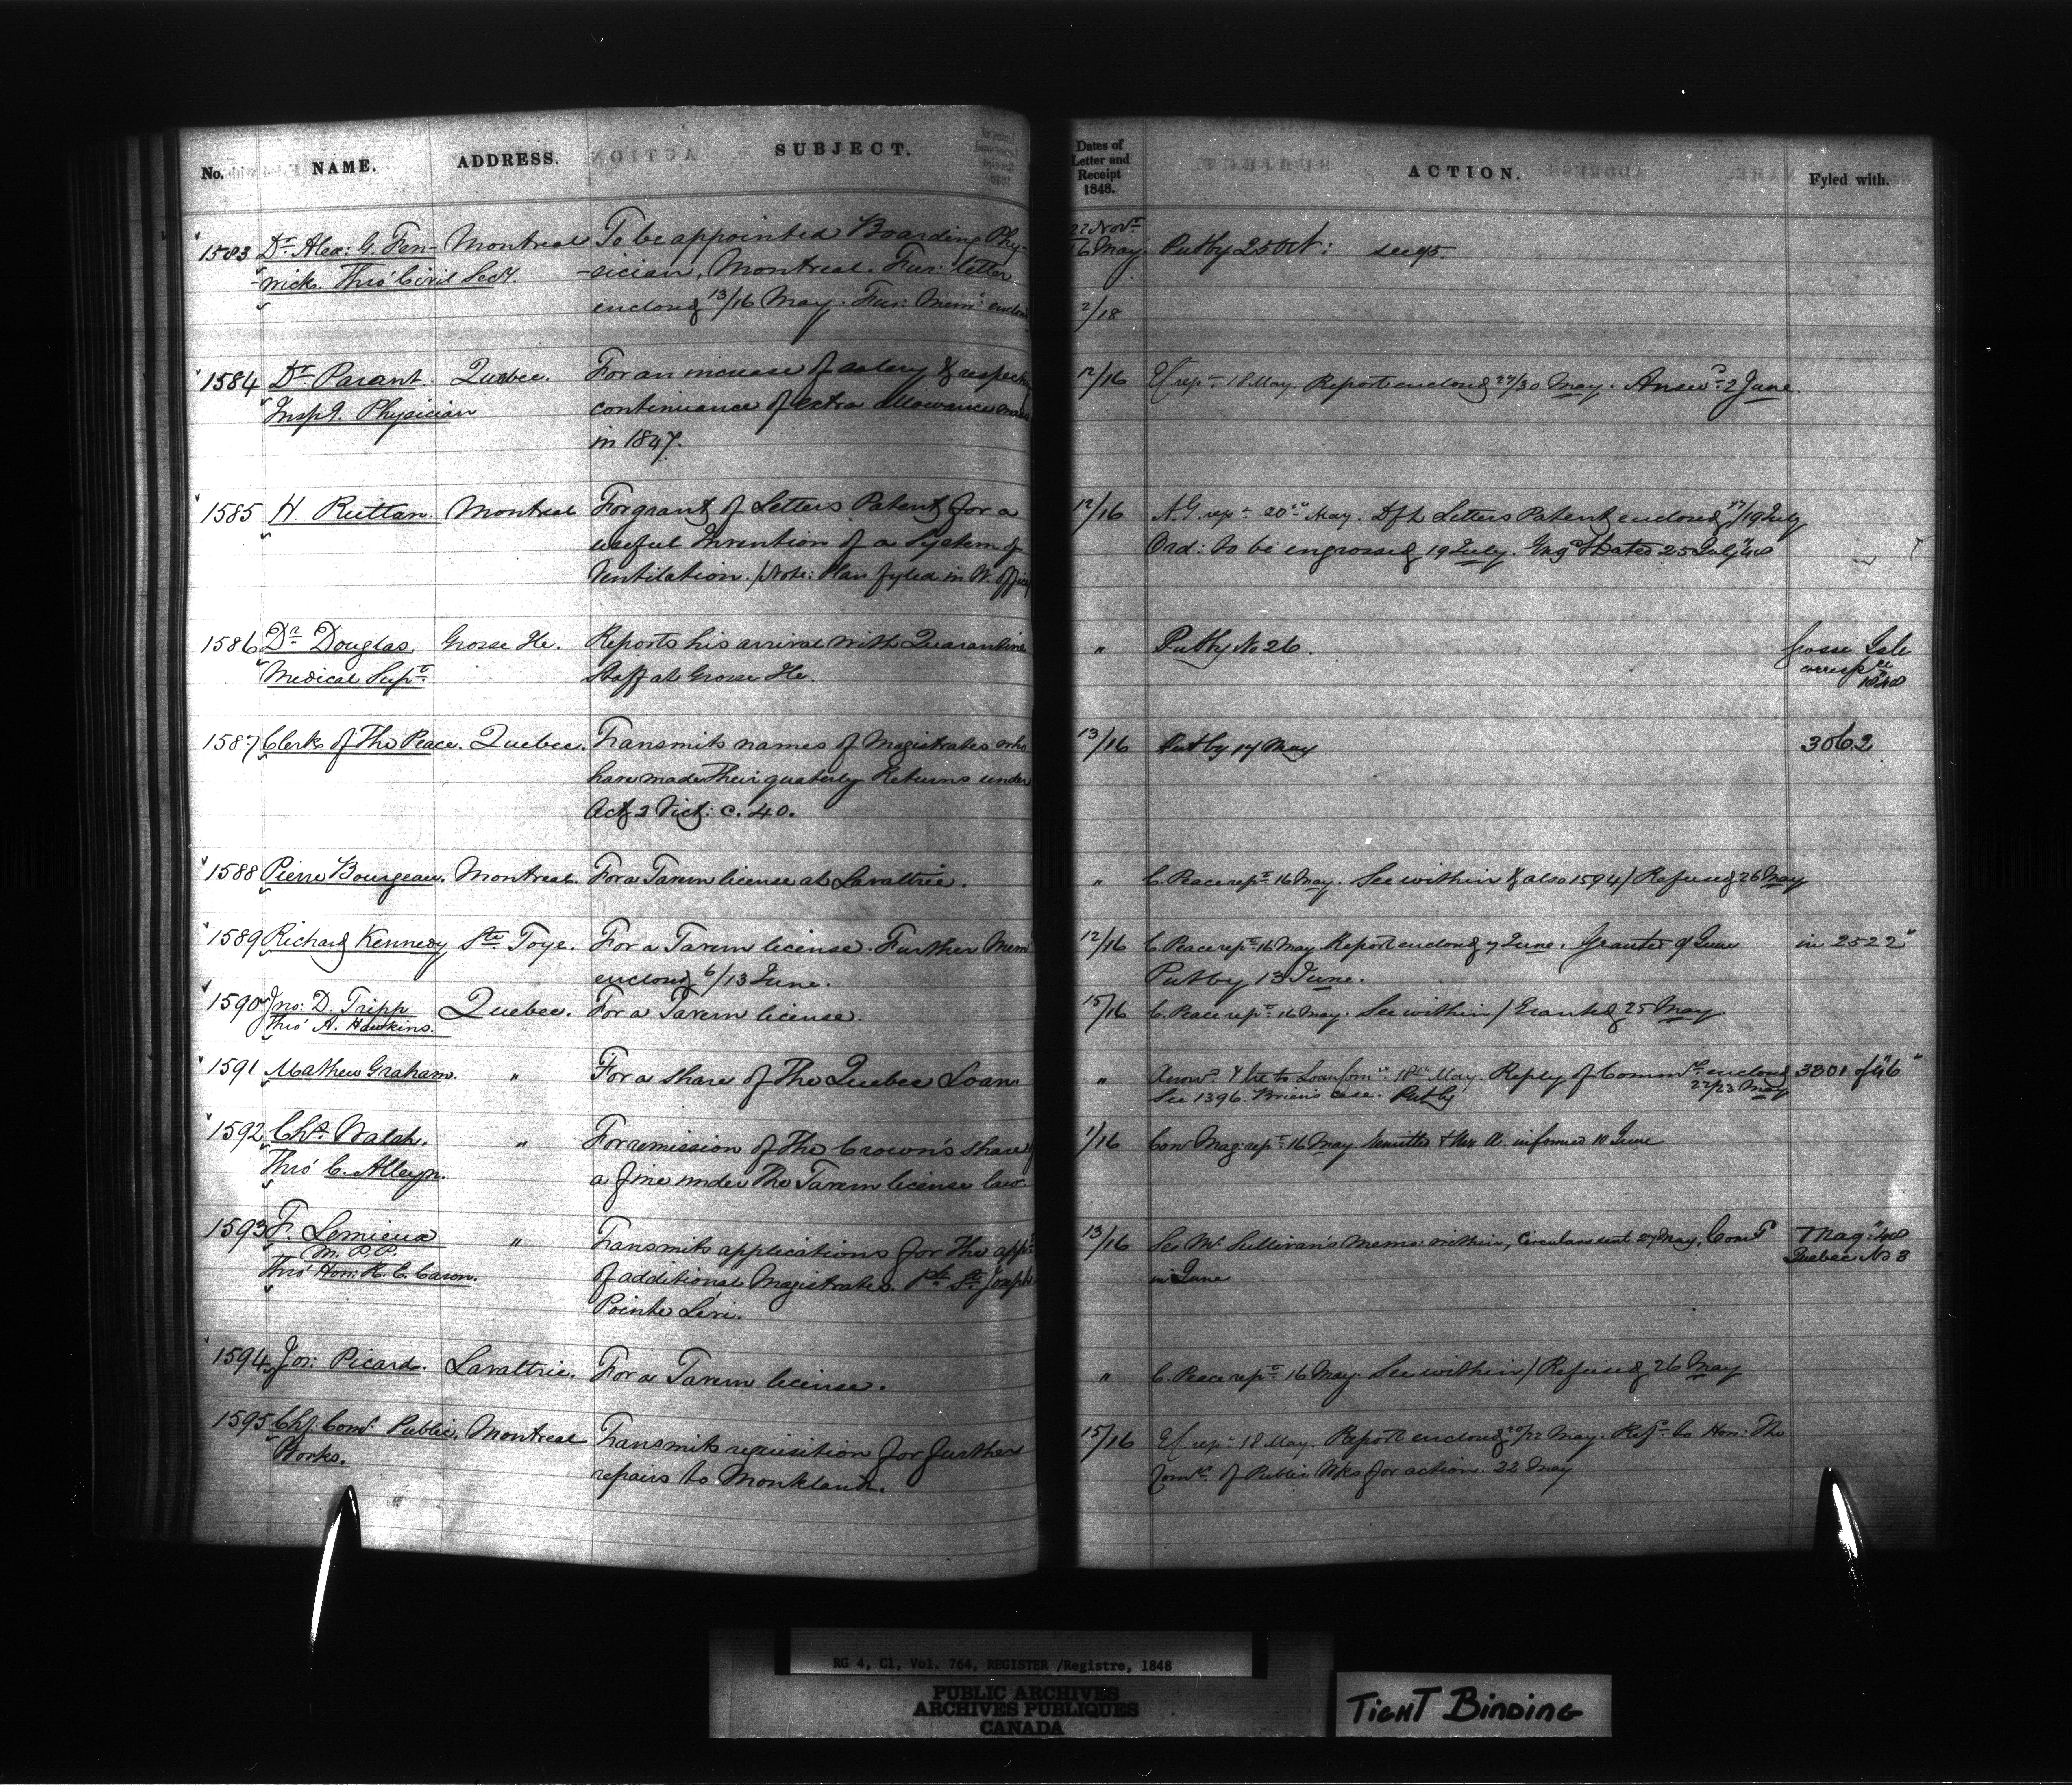 No. NAME. ADDRESS. SUBJECT.
Dates of Letter and Receipt 1848. ACTION. Fyled with.
1583 Dr. Alex: G. Fen- Montreal To be appointed Boarding Phy- 22 Novr 16 May. Put by 25 Oct:
-wick. Thro' Civil Secy. -sician, Montreal. Fur: letter
enclosed 13/16 May. Fur: Mem: 2/18
1584 Dr. Parant. Quebec. For an increase of salary & respecting 12/16 rept. 18 May. Report enclosed 27/30 May. Answd. 2 June.
Inspg. Physician continuance of extra allowance made
in 1847.
1585 H. Ruttan. Montreal For grant of Letters Patent for a 12/16 A.G. rept. 20th May. Dft Letters Patent enclosed 17/19 July
useful Invention of a System of Ord: to be engrossed 19 July. Engd. & dated 25 July
Ventilation. / Note: Plan fyled in W. office
1586 Dr. Douglas Grosse Ile. Reports his arrival with Quarantine " Put by No 26. Grosse Isle
Medical Supt. Staff at Grosse Ile. corresp ce 1848
1587 Clerk of the Peace. Quebec. Transmits names of Magistrates who 13/16 Put by 17 May 3062
have made their quaterly Returns under
Act 2 Vict: c. 40.
1588 Pierre Bourgeau. Montreal. For a Tavern license at Lavaltrie. " C. Peace rept. 16 May. See within & also 1594 / Refused 26 May
1589 Richard Kennedy Ste Foye. For a Tavern license. Further Mem 12/16 C. Peace rept. 16 May Report enclosed 7 June. Granted 9 June in 2522
enclosed 6/13 June. Put by 13 June.
1590 Jno: D. Tripp Quebec. For a Tavern license. 15/16 C. Peace rept. 16 May. See within / Granted 25 May
Thro' A. Hawkins.
1591 Mathew Graham. " For a share of the Quebec Loan " Answd. & let to Loan Com 18th May. Reply of Commrs. enclosed 22/23 May 3301 of 46
See 1396. Brien's case. Put by
1592 Chs. Walsh. " For remission of the Crown's share 1/16 Com Mag: rept. 16 May. Remitted & Mr. A. informed 10 June
Thro' C. Alleyn. a fine under the Tavern license law
1593 F. Lemieux " Transmits applications for the appt. 13/16 See Mr. Sullivan's Memo: within, Circulars sent 27 May, Comd 7 Mag: 48
M.P.P. of additional Magistrates. Psh. St. Joseph in June Quebec No 3
Thro' Hon: R. E. Caron. Pointe Lévi.
1594 Jos: Picard. Lavaltrie. For a Tavern license. " C. Peace rept. 16 May. See within / Refused 26 May
1595 Chf. Comr. Public Montreal Transmits requisition for further 15/16 rept. 18 May. Report enclosed 20/22 May. Refd. to Hon: The
Works. repairs to Monklands. Comrs. of Public Wks for action. 22 May
RG 4, C1, Vol. 764, REGISTER /Registre, 1848
PUBLIC ARCHIVES
ARCHIVES PUBLIQUES
CANADA
TIGHT BINDING